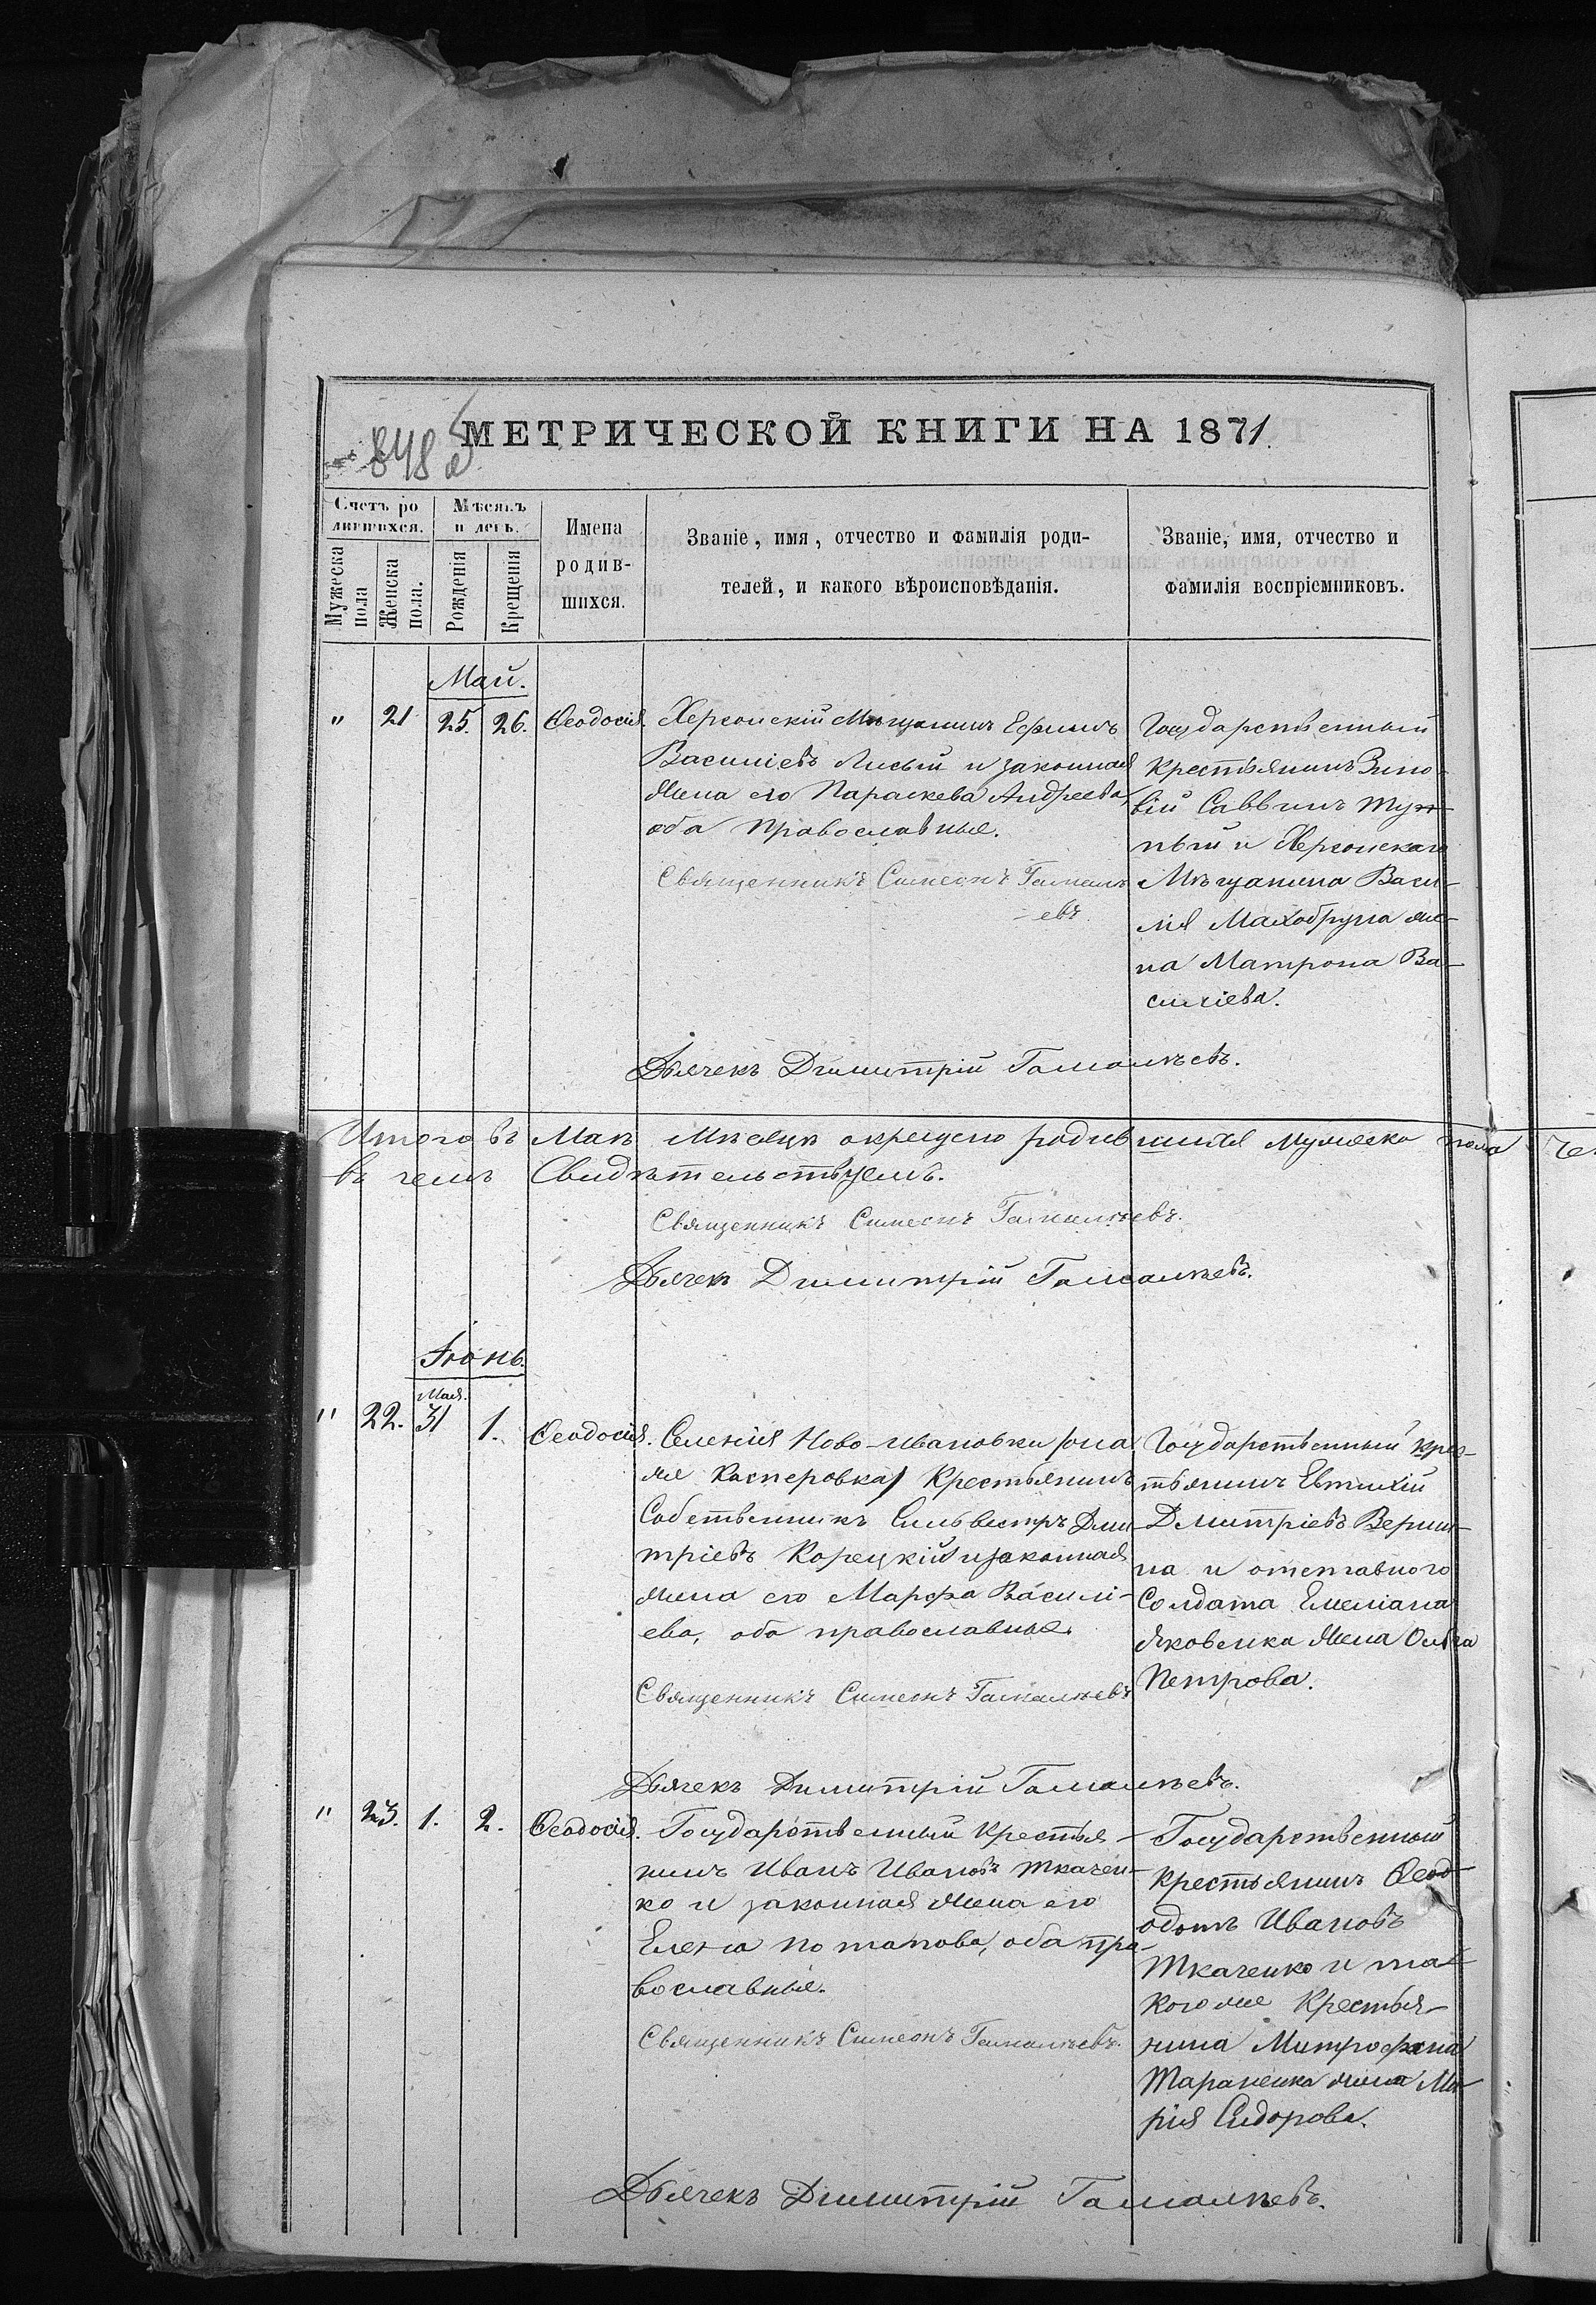 848
МЕТРИЧЕСКОЙ КНИГИ НА 1871.
Счетъ ро
дившихся.
Мѣсяцъ
и день.
Имена
родив-
шихся.
Званіе, имя, отчество и фамилія роди-
телей, и какого вѣроисповѣданія.
Званіе, имя, отчество и
фамилія воспріемниковъ.
Мужеска
пола
Женска
пола.
Рожденія
Крещенія
Май.
" 21 25. 26. Ѳеодосія.
Херсонскій Мѣщанинъ Ефимъ
Василіевъ Лисый и законная
жена его Параскева Андреева,
оба православные.
Священникъ Симеонъ Гамалѣ
евъ
Государственный
крестьянинъ Зино-
вій Саввинъ
и Херсонскаго
Мѣщанина Васи-
лія же-
на Матрона Ва-
силіева.
Дьячекъ Димитрій Гамалѣевъ.
Итого въ Маѣ Мѣсяцѣ окрещено родившихся Мужеска пола
въ чемъ Свидѣтельствуемъ.
Священникъ Симеонъ Гамалѣевъ.
Дьячекъ Димитрій Гамалѣевъ.
Іюнь.
Мая.
" 22. 31 1. Ѳеодосія.
Селенія Ново-Ивановки (она
же Касперовка) Крестьянинъ
Собственникъ Сильвестръ Дми
тріевъ Корецкій и законная
жена его Марфа Василі-
ева, оба православные.
Священникъ Симеонъ Гамалѣевъ
Государственный крес-
тьянинъ Евтихій
Дмитріевъ Верши-
на и отставного
Солдата Емеліана
Яковенка жена Ольга
Петрова.
Дьячекъ Димитрій Гамалѣевъ.
" 23. 1. 2. Ѳеодосія.
Государственный Крестья-
нинъ Иванъ Ивановъ Ткачен-
ко и законная жена его
Елена Потапова, оба пра-
вославные.
Священникъ Симеонъ Гамалѣевъ.
Государственный
крестьянинъ Ѳеод-
отъ Ивановъ
Ткаченко и та-
кого же Крестья-
нина Митрофана
Тараненка жена Ма-
рія Сидорова.
Дьячекъ Димитрій Гамалѣевъ.